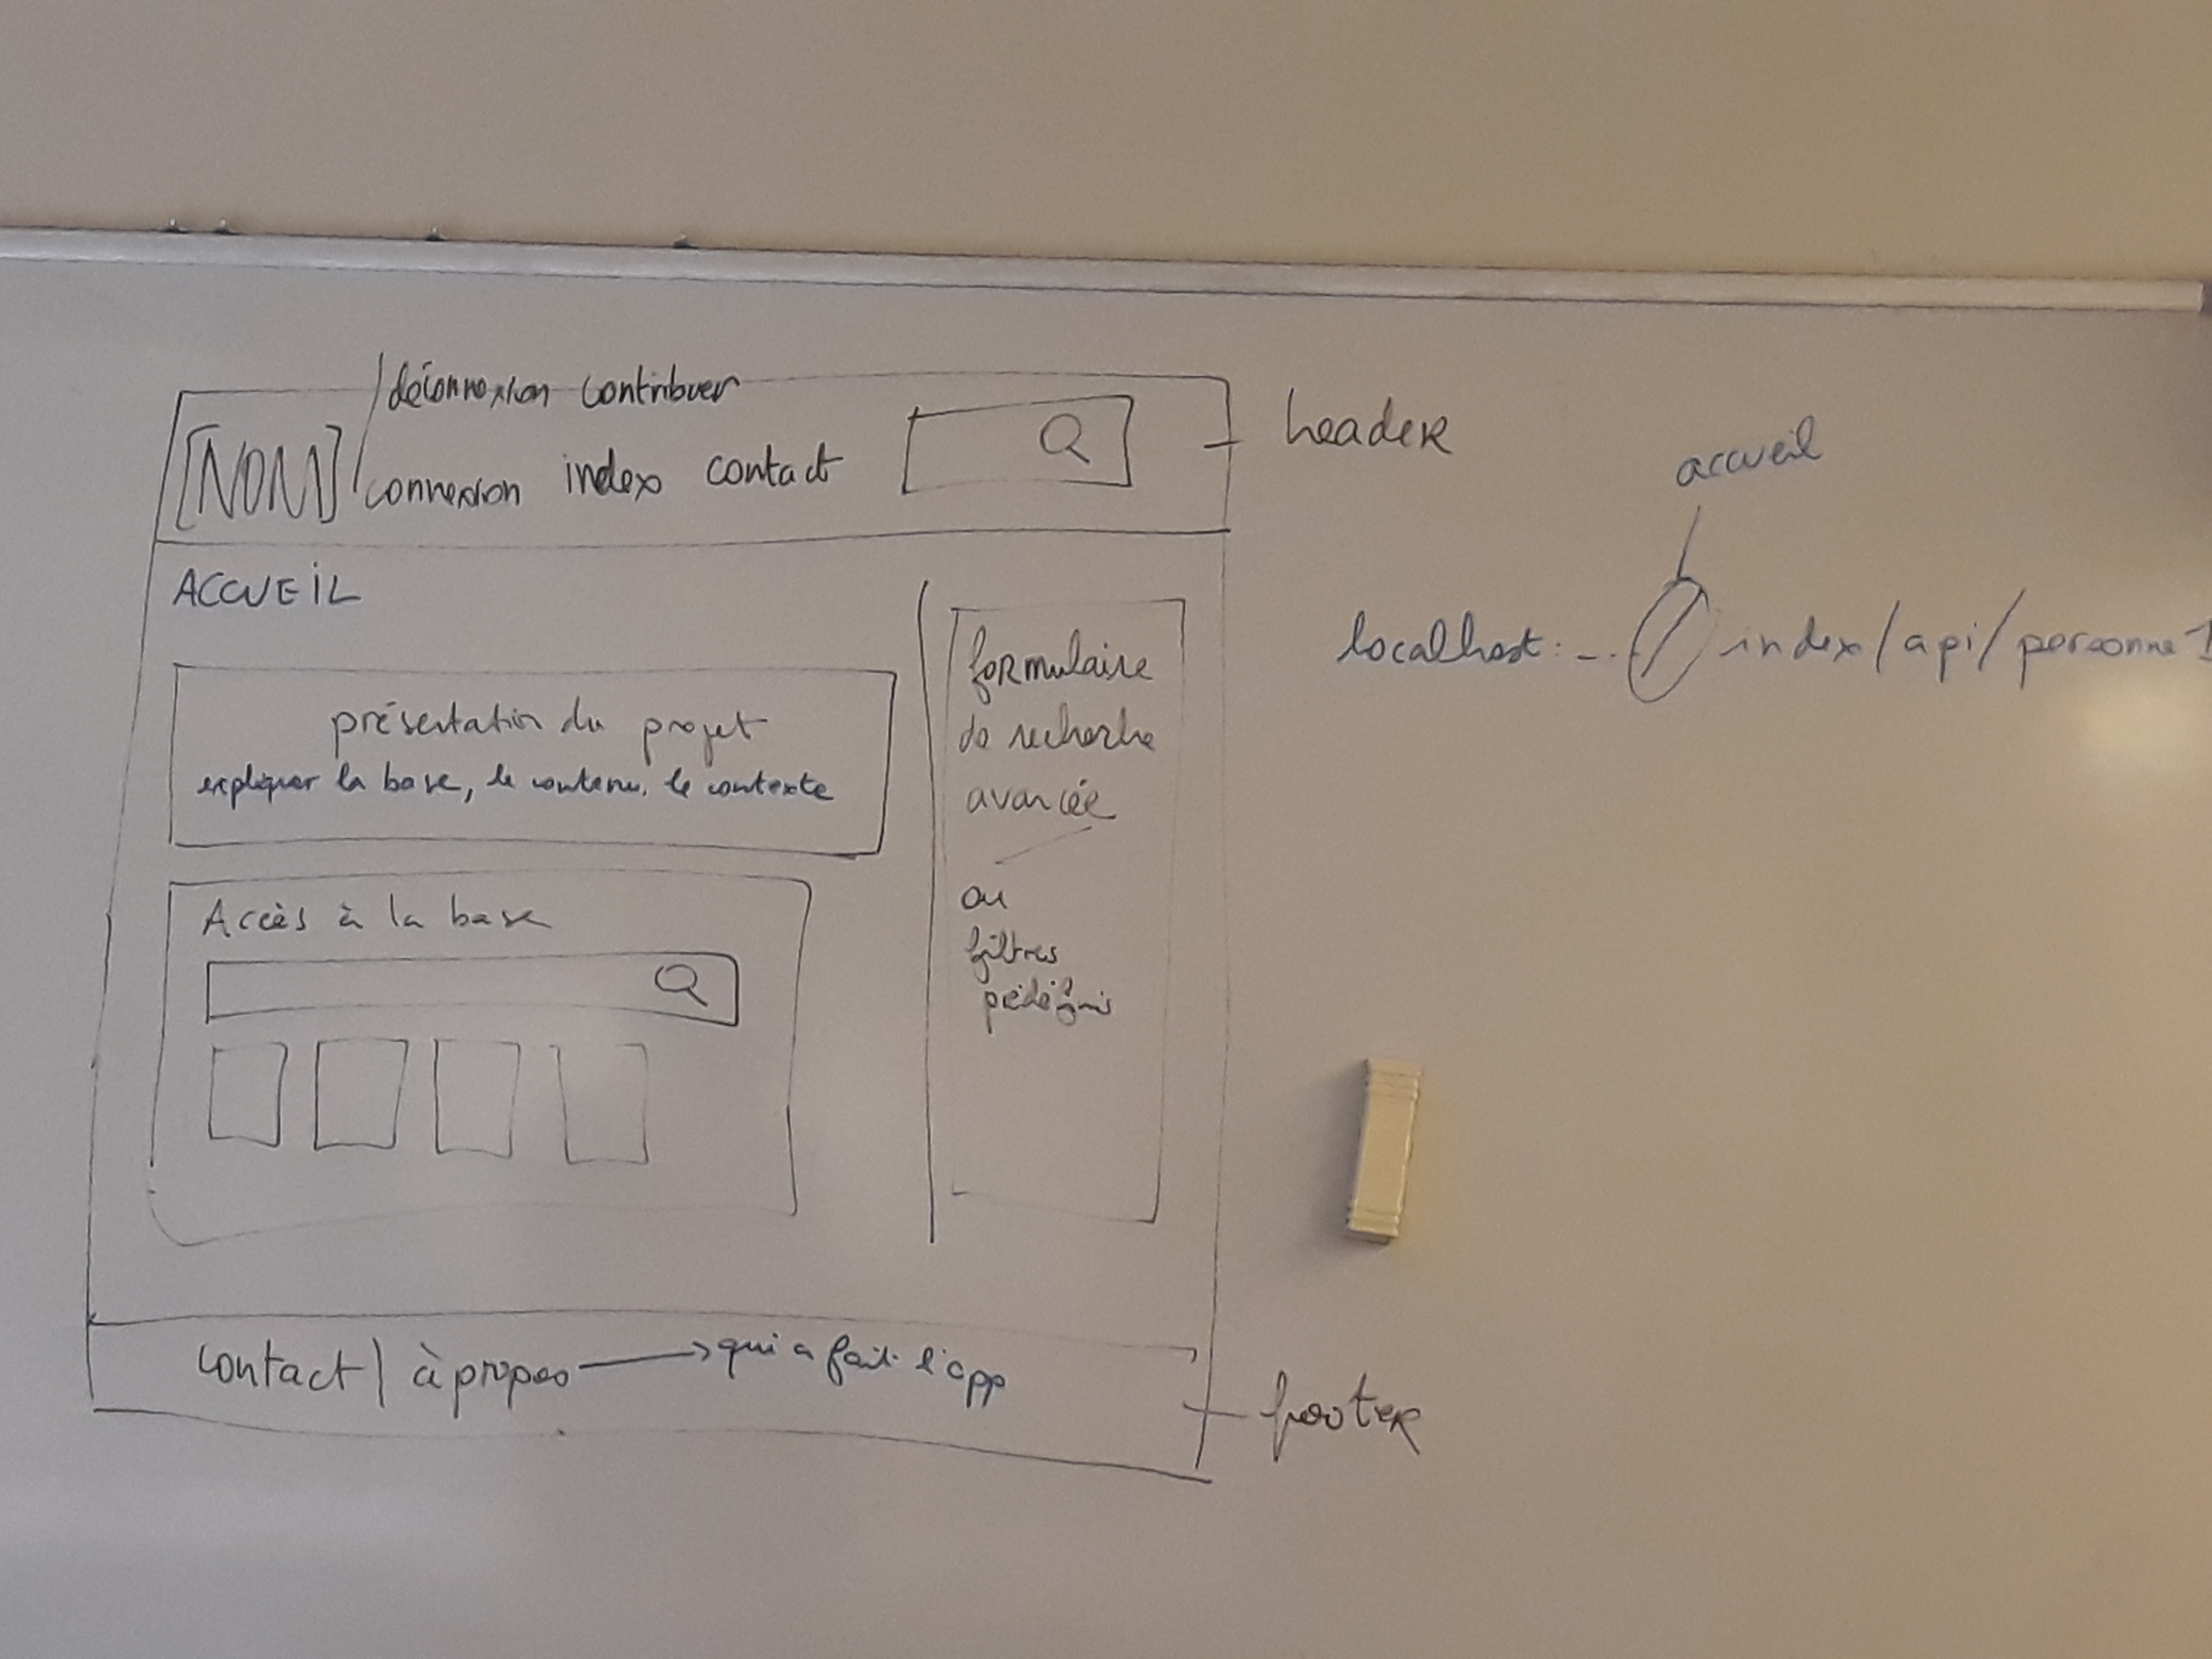 /déconnexion contribuer
[NOM] / connexion index contact
header
ACCUEIL
présentation du projet
expliquer la base, le contenu, le contexte
Accès à la base
formulaire
de recherche
avancée
ou
filtres
prédéfinis
contact | à propos → qui a fait l'app
footer
accueil
localhost:... / index/api/personne 1